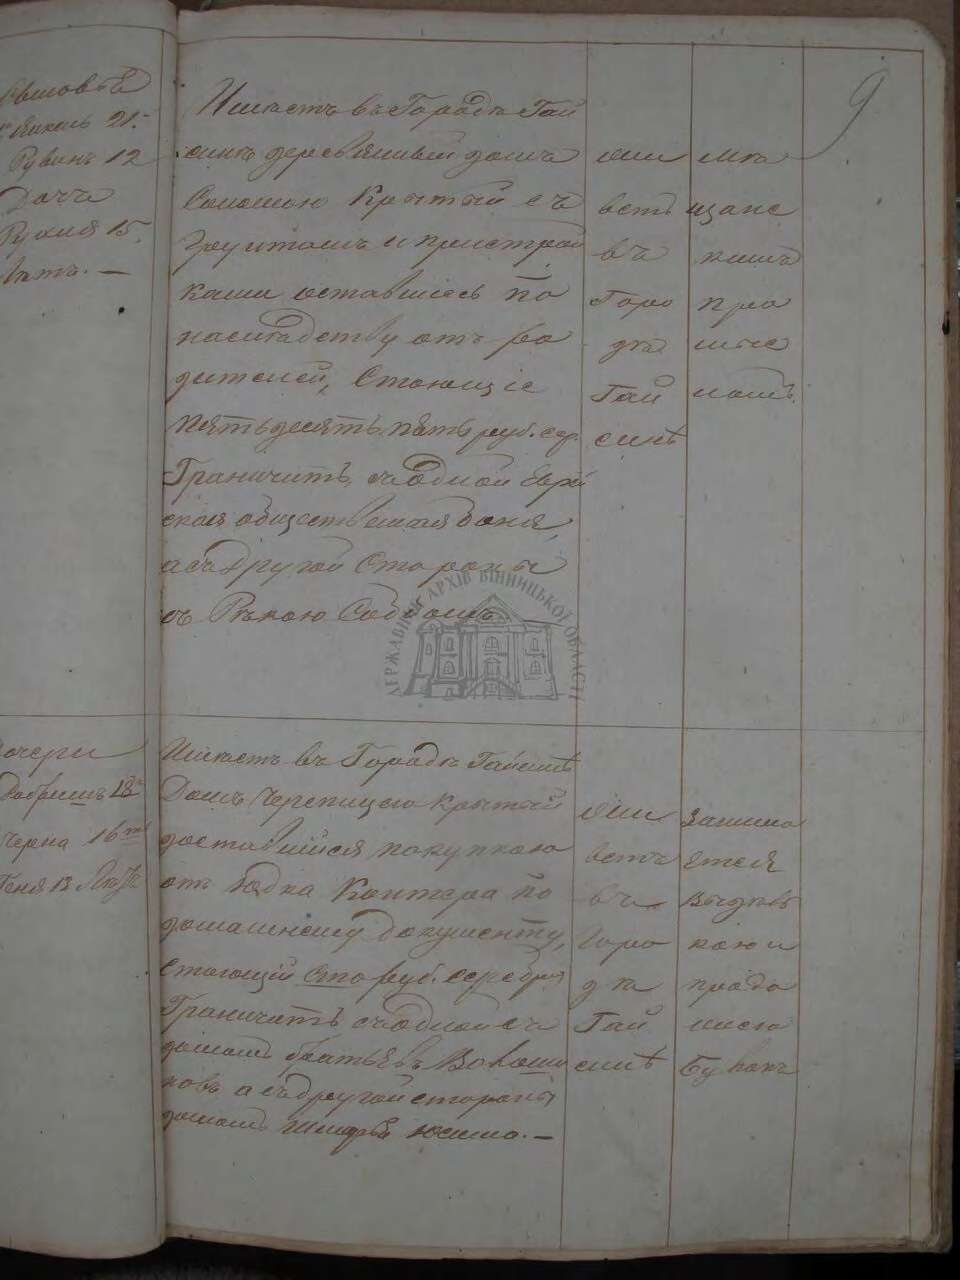 9
Рувинъ 12
Дочь
Рухля 15.
лѣтъ. —
Имѣетъ въ Городѣ Гай
синѣ деревянный домъ
Соломою Крытый съ
Грунтомъ и пристрой
ками оставшiесь по
наслѣдству отъ ро
дителей, Стоющiе
пятьдесятъ пять руб. сер.
Граничитъ, съ одной Еврей
ская общественная баня,
а съ другой Стороны
съ Рѣкою Собомъ
живетъ
въ
Горо
дѣ
Гай
синѣ
мѣ
щанс
кимъ
про
мыс
ломъ.
ДЕРЖАВНИЙ АРХІВ ВІННИЦЬКОЇ ОБЛАСТІ
дочери
Добришъ 18
Черна 16
Геня 13 лѣтъ
Имѣетъ въ Городѣ Гайсинѣ
Домъ Черепицею Крытый
доставшiйся покупкою
отъ Контера по
домашнему документу,
Стоющiй Сто руб. серебр
Граничитъ съ одной съ
домомъ братьевъ Волоши
новъ а съ другой стороны
домомъ
живетъ
въ
Горо
дѣ
Гай
синѣ
Занима
ется
Выпѣч
кою и
прода
жею
Булокъ